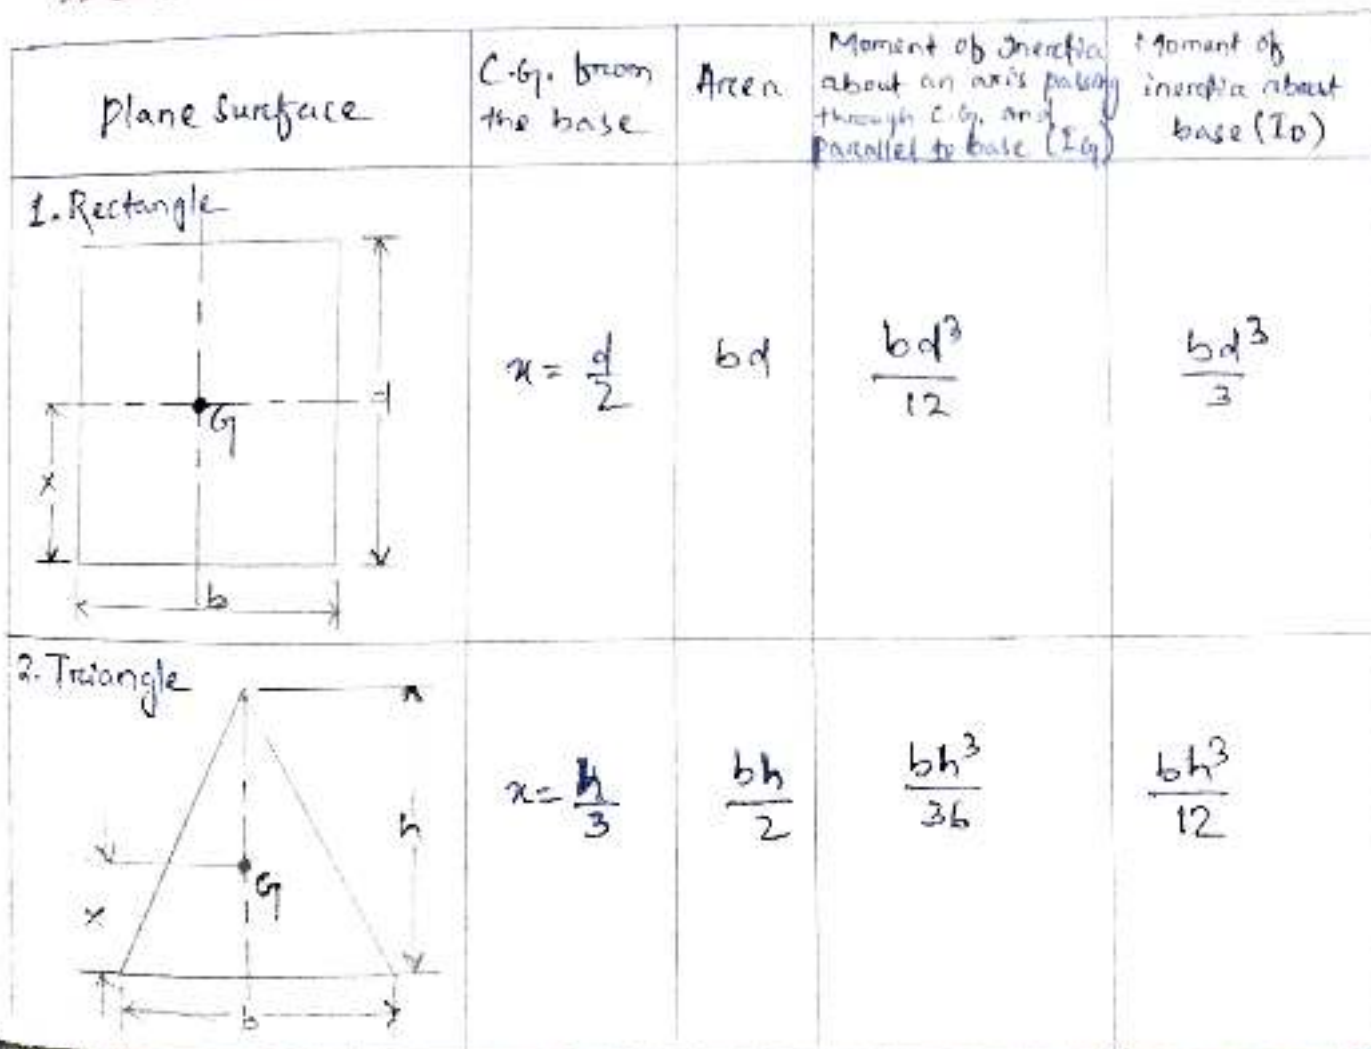 Plane Surface
C.G. from
the base
Area
Moment of Inertia
about an axis passing
through C.G. and
parallel to base (IG)
Moment of
inertia about
base (I0)
1. Rectangle
G
x
b
x = d/2
bd
bd³/12
bd³/3
2. Triangle
h
G
x
b
x = h/3
bh/2
bh³/36
bh³/12